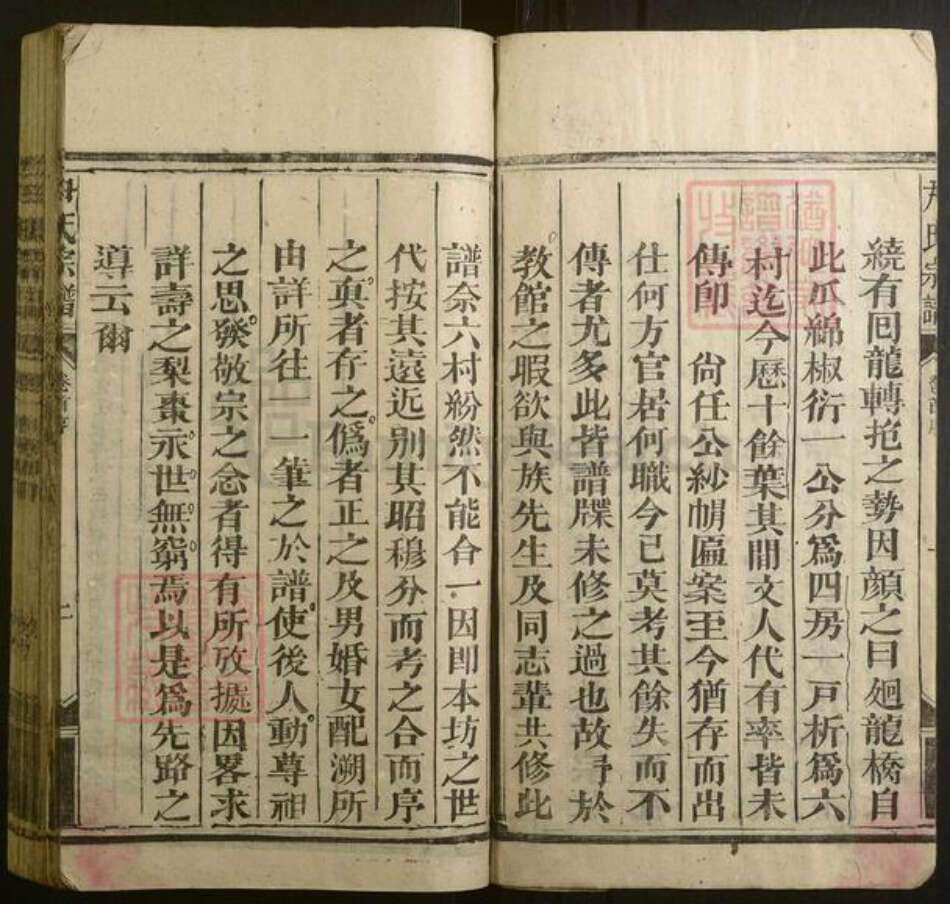 繞有囘龍轉抱之勢因顔之曰廻龍橋自
此瓜綿椒衍一公分爲四房一戸析爲六
村迄今歷十餘葉其間文人代有率皆未
傳卽 尙任公紗帽匾案至今猶存而出
仕何方官居何職今已莫考其餘失而不
傳者尤多此皆譜牒未修之過也故予於
教館之暇欲與族先生及同志輩共修此
譜奈六村紛然不能合一因卽本坊之世
代按其遠近别其昭穆分而考之合而序
之眞者存之僞者正之及男婚女配溯所
由詳所往一一筆之於譜使後人動尊祖
之思發敬宗之念者得有所攷據因畧求
詳壽之梨棗示世無窮焉以是爲先路之
導云爾
氏宗譜